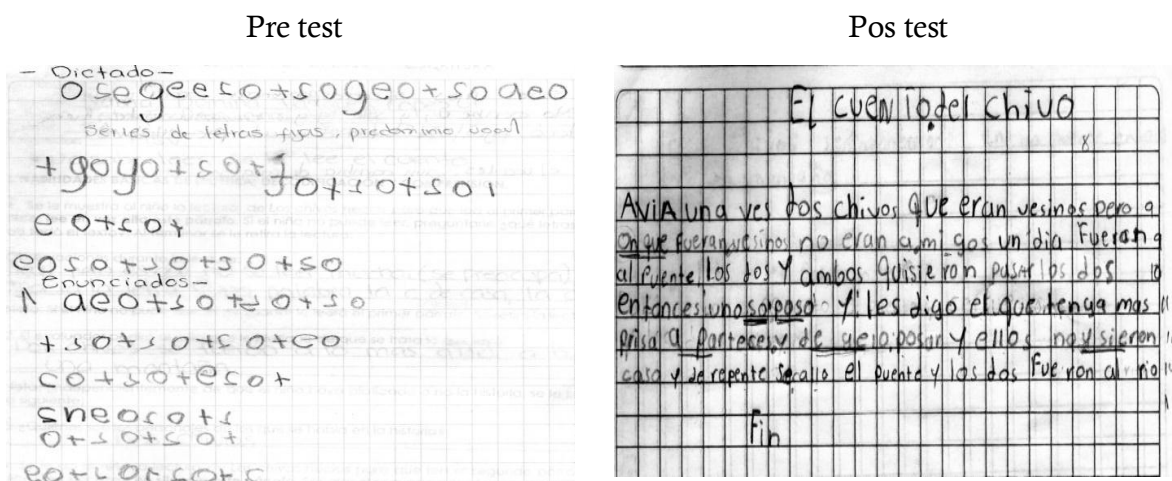 Pre test
Pos test
- Dictado -
osegeeso+sogeo+soaeo
series de letras fijas, predominio vocal
+goyo+so+
jo+so+so1
eo+so+
eoso+so+so+so
Enunciados-
aeo+so+so+so
+so+so+so+eo
co+so+eso+
sneoso+s
o+so+so+
eo+so+so+s
El cuento del chivo
8
Avia una ves dos chivos que eran vesinos pero a
onque fueran vesinos no eran amigos un dia fueron 9
al puente los dos y ambos quisieron pasar los dos 10
entonces uno so poso y les digo el que tenga mas 11
prisa a partece y de gelo posar y ellos no y sieron
caso y de repente se callo el puente y los dos fueron al rio
Fin